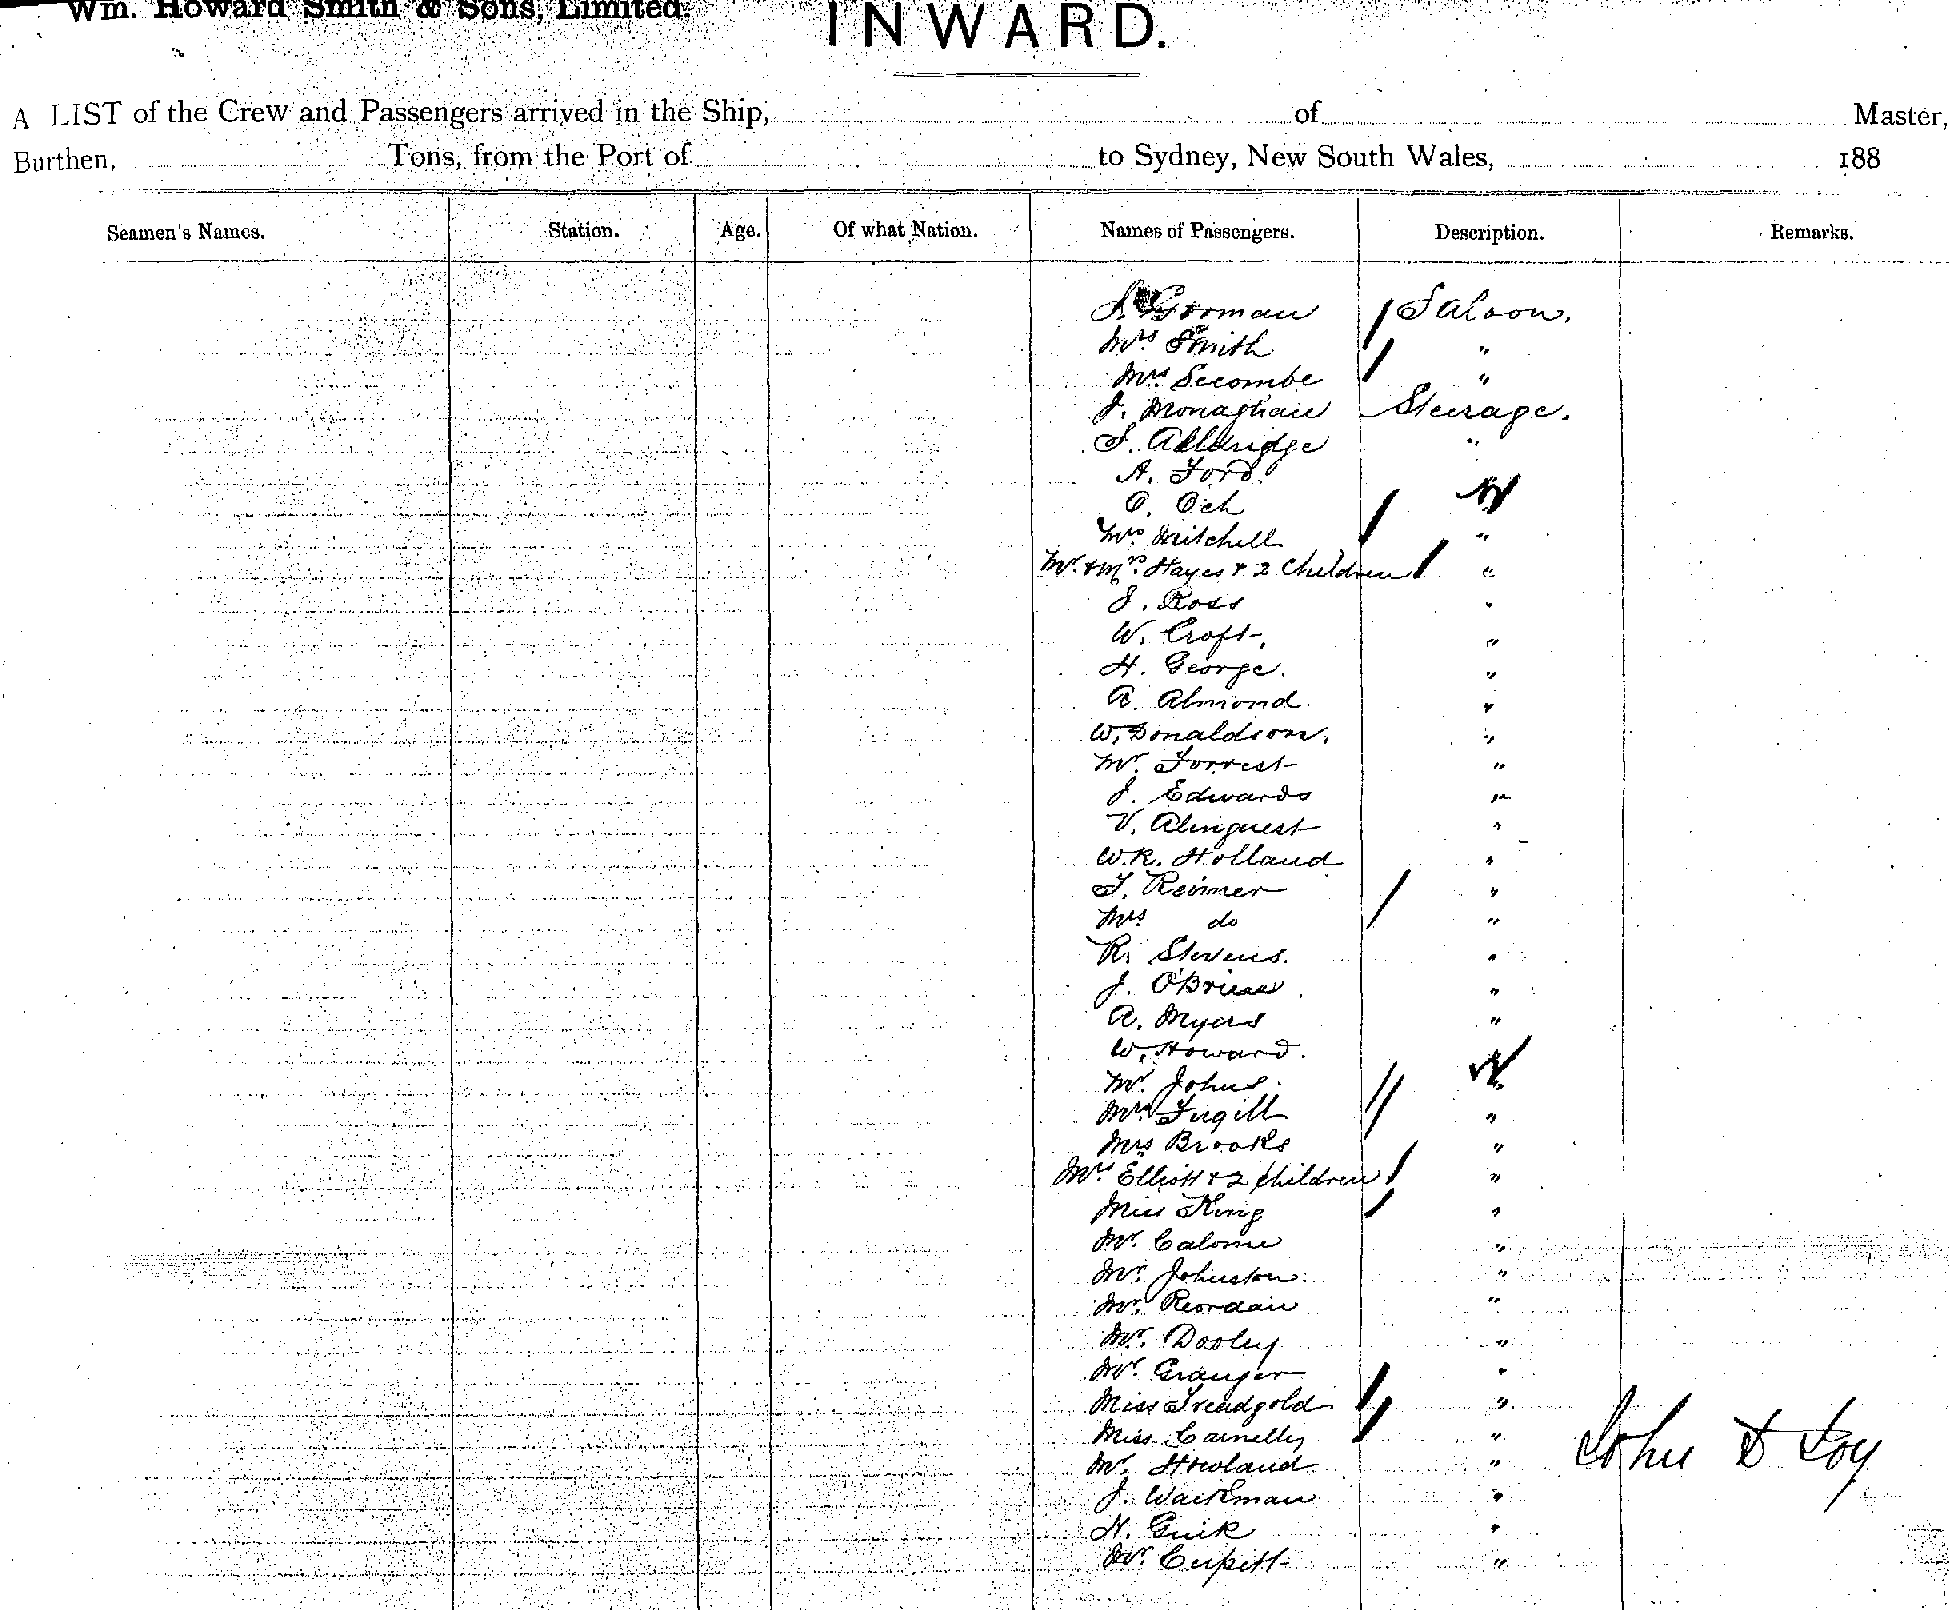 Wm. Howard Smith & Sons, Limited.
INWARD.
A LIST of the Crew and Passengers arrived in the Ship, of Master,
Burthen, Tons, from the Port of to Sydney, New South Wales, 188
Seamen's Names. Station. Age. Of what Nation. Names of Passengers. Description. Remarks.
Gorman Saloon.
Mrs Smith "
Mrs Secombe "
J. Monaghan Steerage.
S. Alldridge "
A. Ford
O. Och
Mrs Mitchell "
Mr. & Mrs. Hayes & 2 Children "
J. Ross "
W. Croft. "
H. George. "
A. Almond "
W. Donaldson. "
Mr. Forrest "
J. Edwards "
V. Almquest "
W.R. Holland "
T. Reimer "
Mrs do "
R. Stevens. "
J. O'Brien "
A. Myers "
W. Howard.
Mr. Johns. "
Mrs Fugill "
Mrs Brooks "
Mrs Elliott & 2 Children "
Miss King "
Mr. "
Mr. Johnston. "
Mr. Reordan "
Mr. Dooley "
Mr. Granger "
Miss Treadgold "
Miss "
Mr. Howland. "
J. Workman "
H. "
Mr. Cupitt "
John D Loy